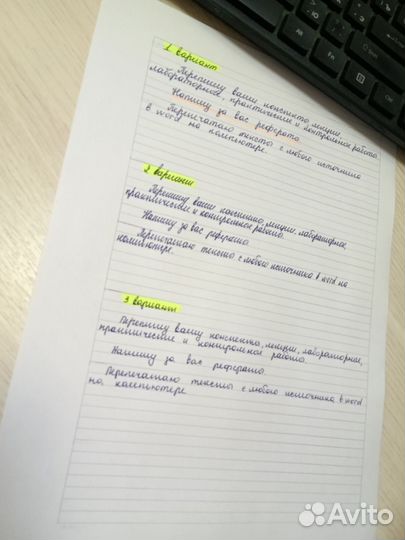 1 вариант
Перепишу ваши конспекты, лекции,
лабораторные, практические и контрольные работы
Напишу за вас реферато.
Перепечатаю тексты с любого источника
в word на компьютере.
2 вариант
Перепишу ваши конспекты, лекции, лабораторные,
практические и контрольные работы.
Напишу за вас рефераты.
Перепечатаю тексты с любого источника в word на
компьютере.
3 вариант
Перепишу вашу конспекты, лекции, лабораторные,
практические и контрольные работы.
Напишу за вас рефераты.
Перепечатаю тексты с любого источника в word
на компьютере
Avito